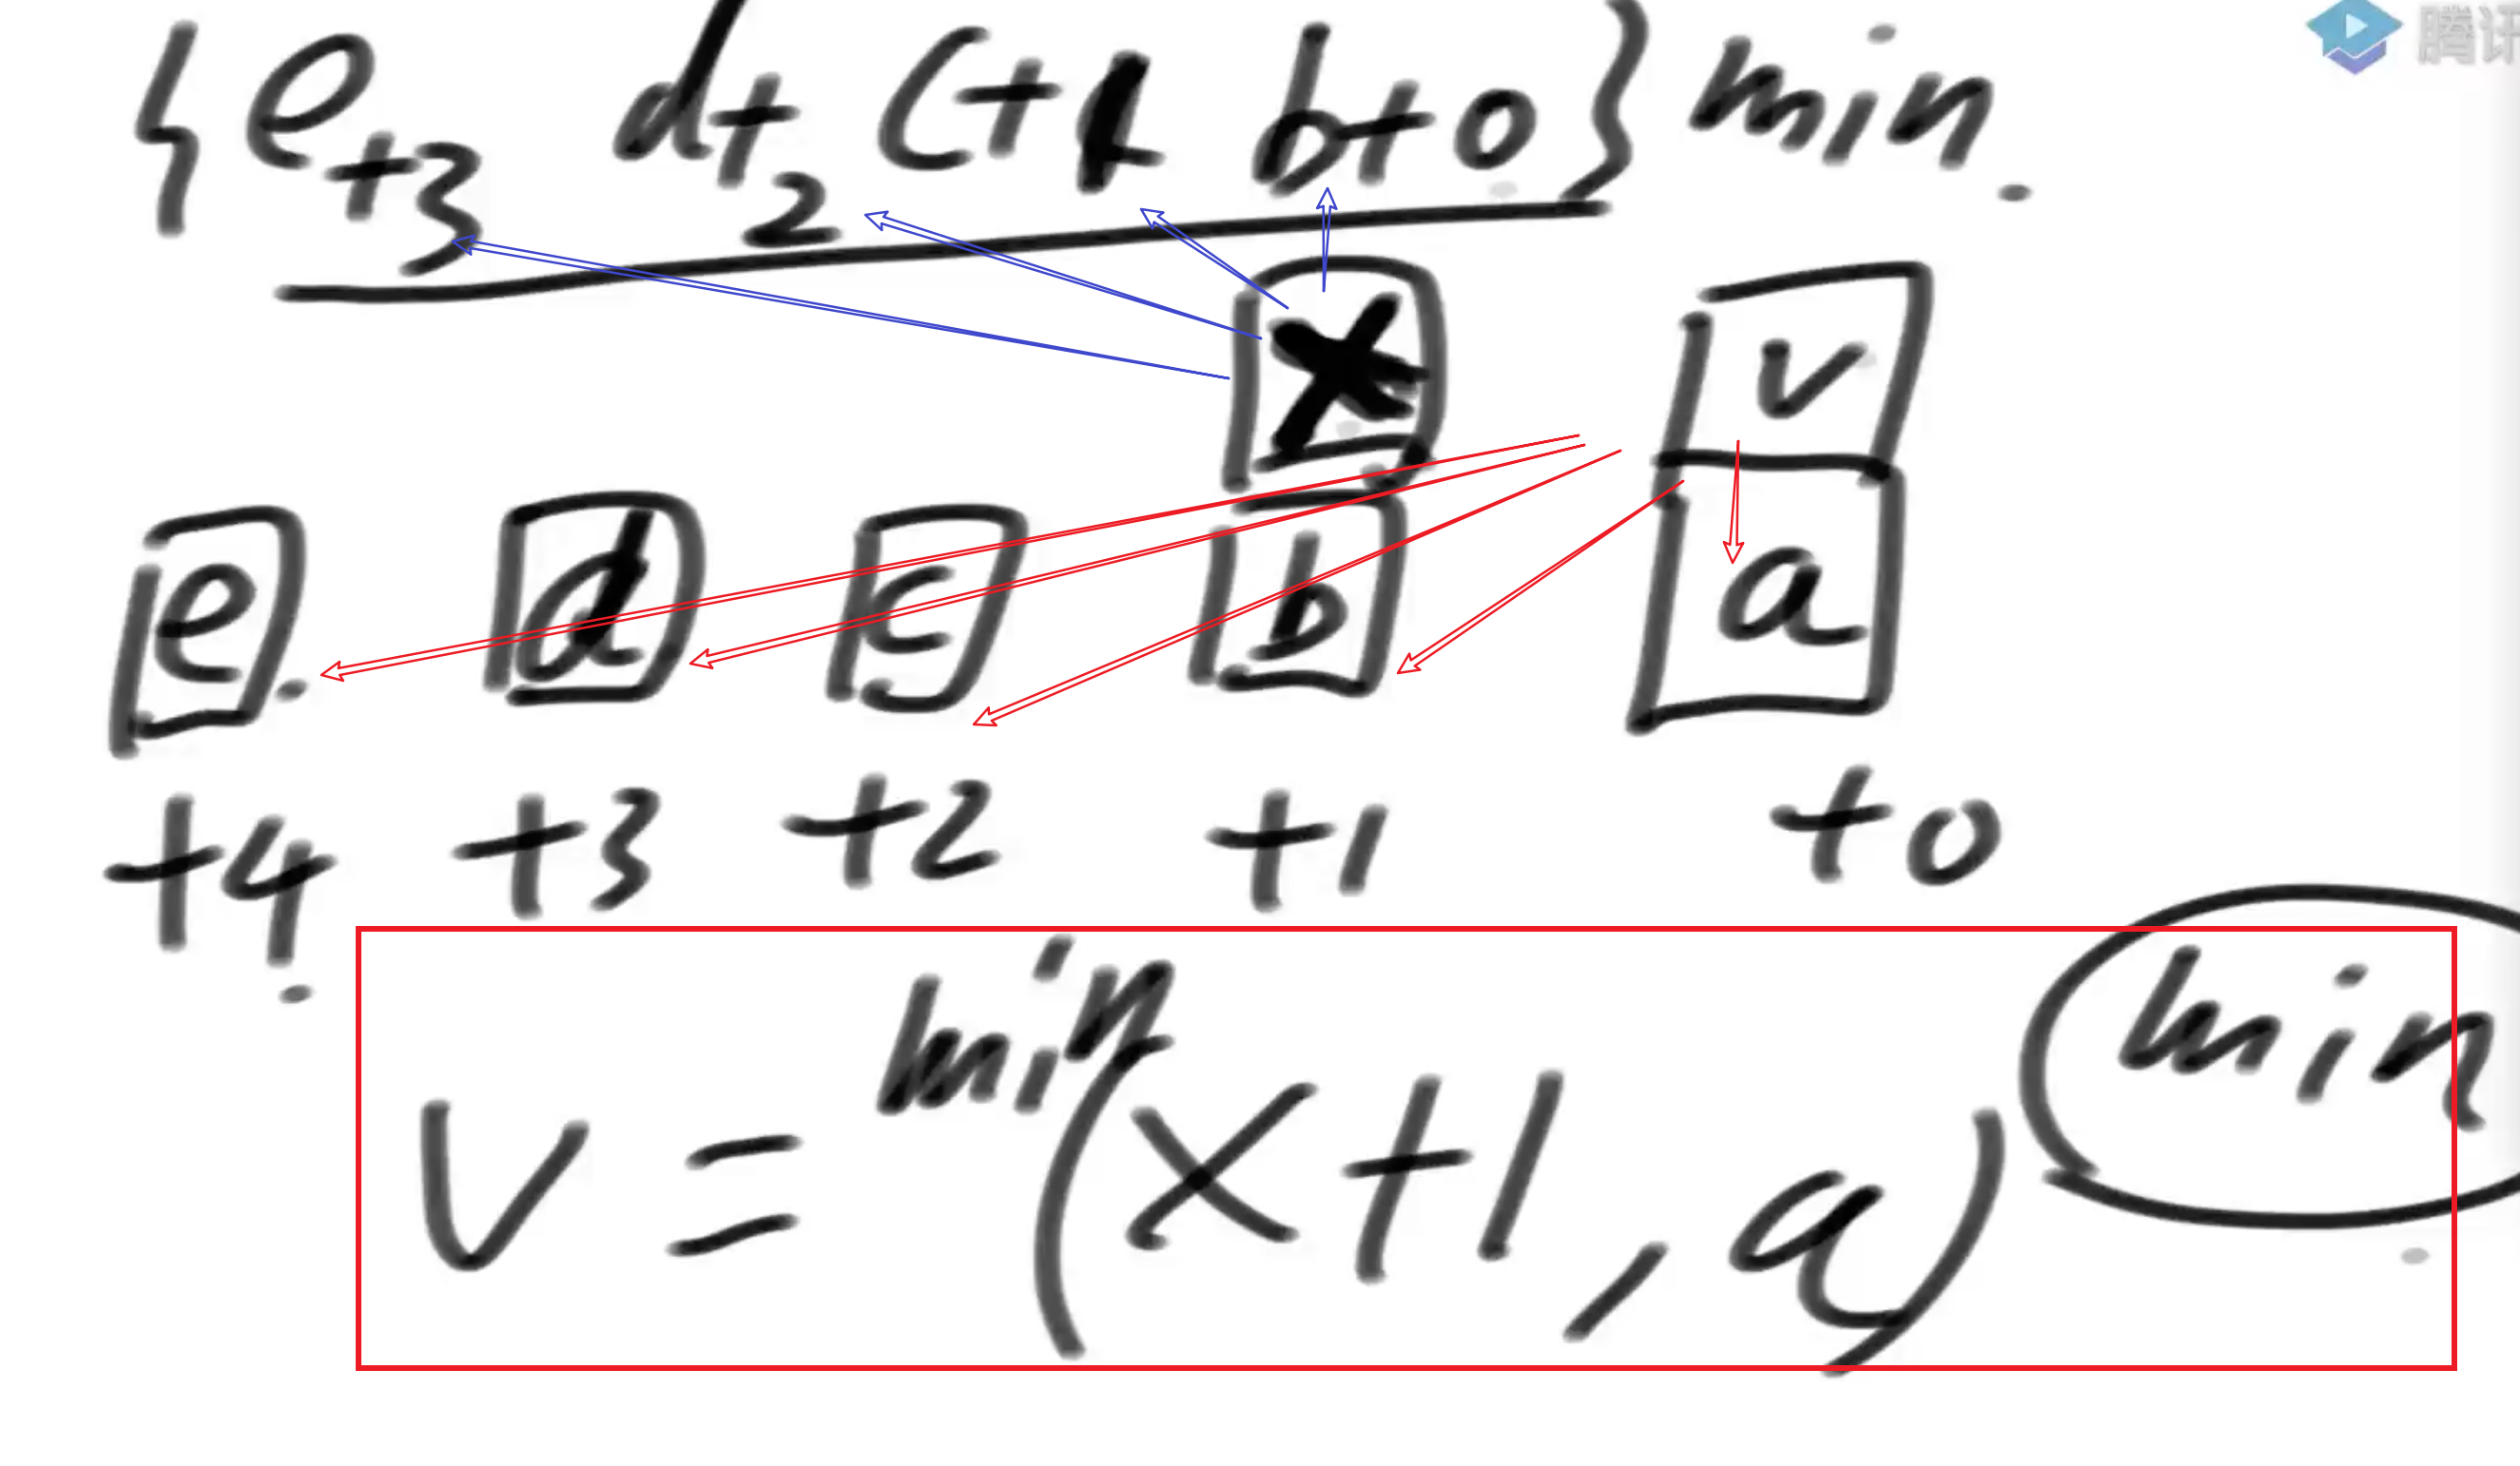 {e+3 d+2 c+1 b+0} min.
腾讯
x v
e. d c b a
+4. +3 +2 +1 +0
v = min(x+1, a) min